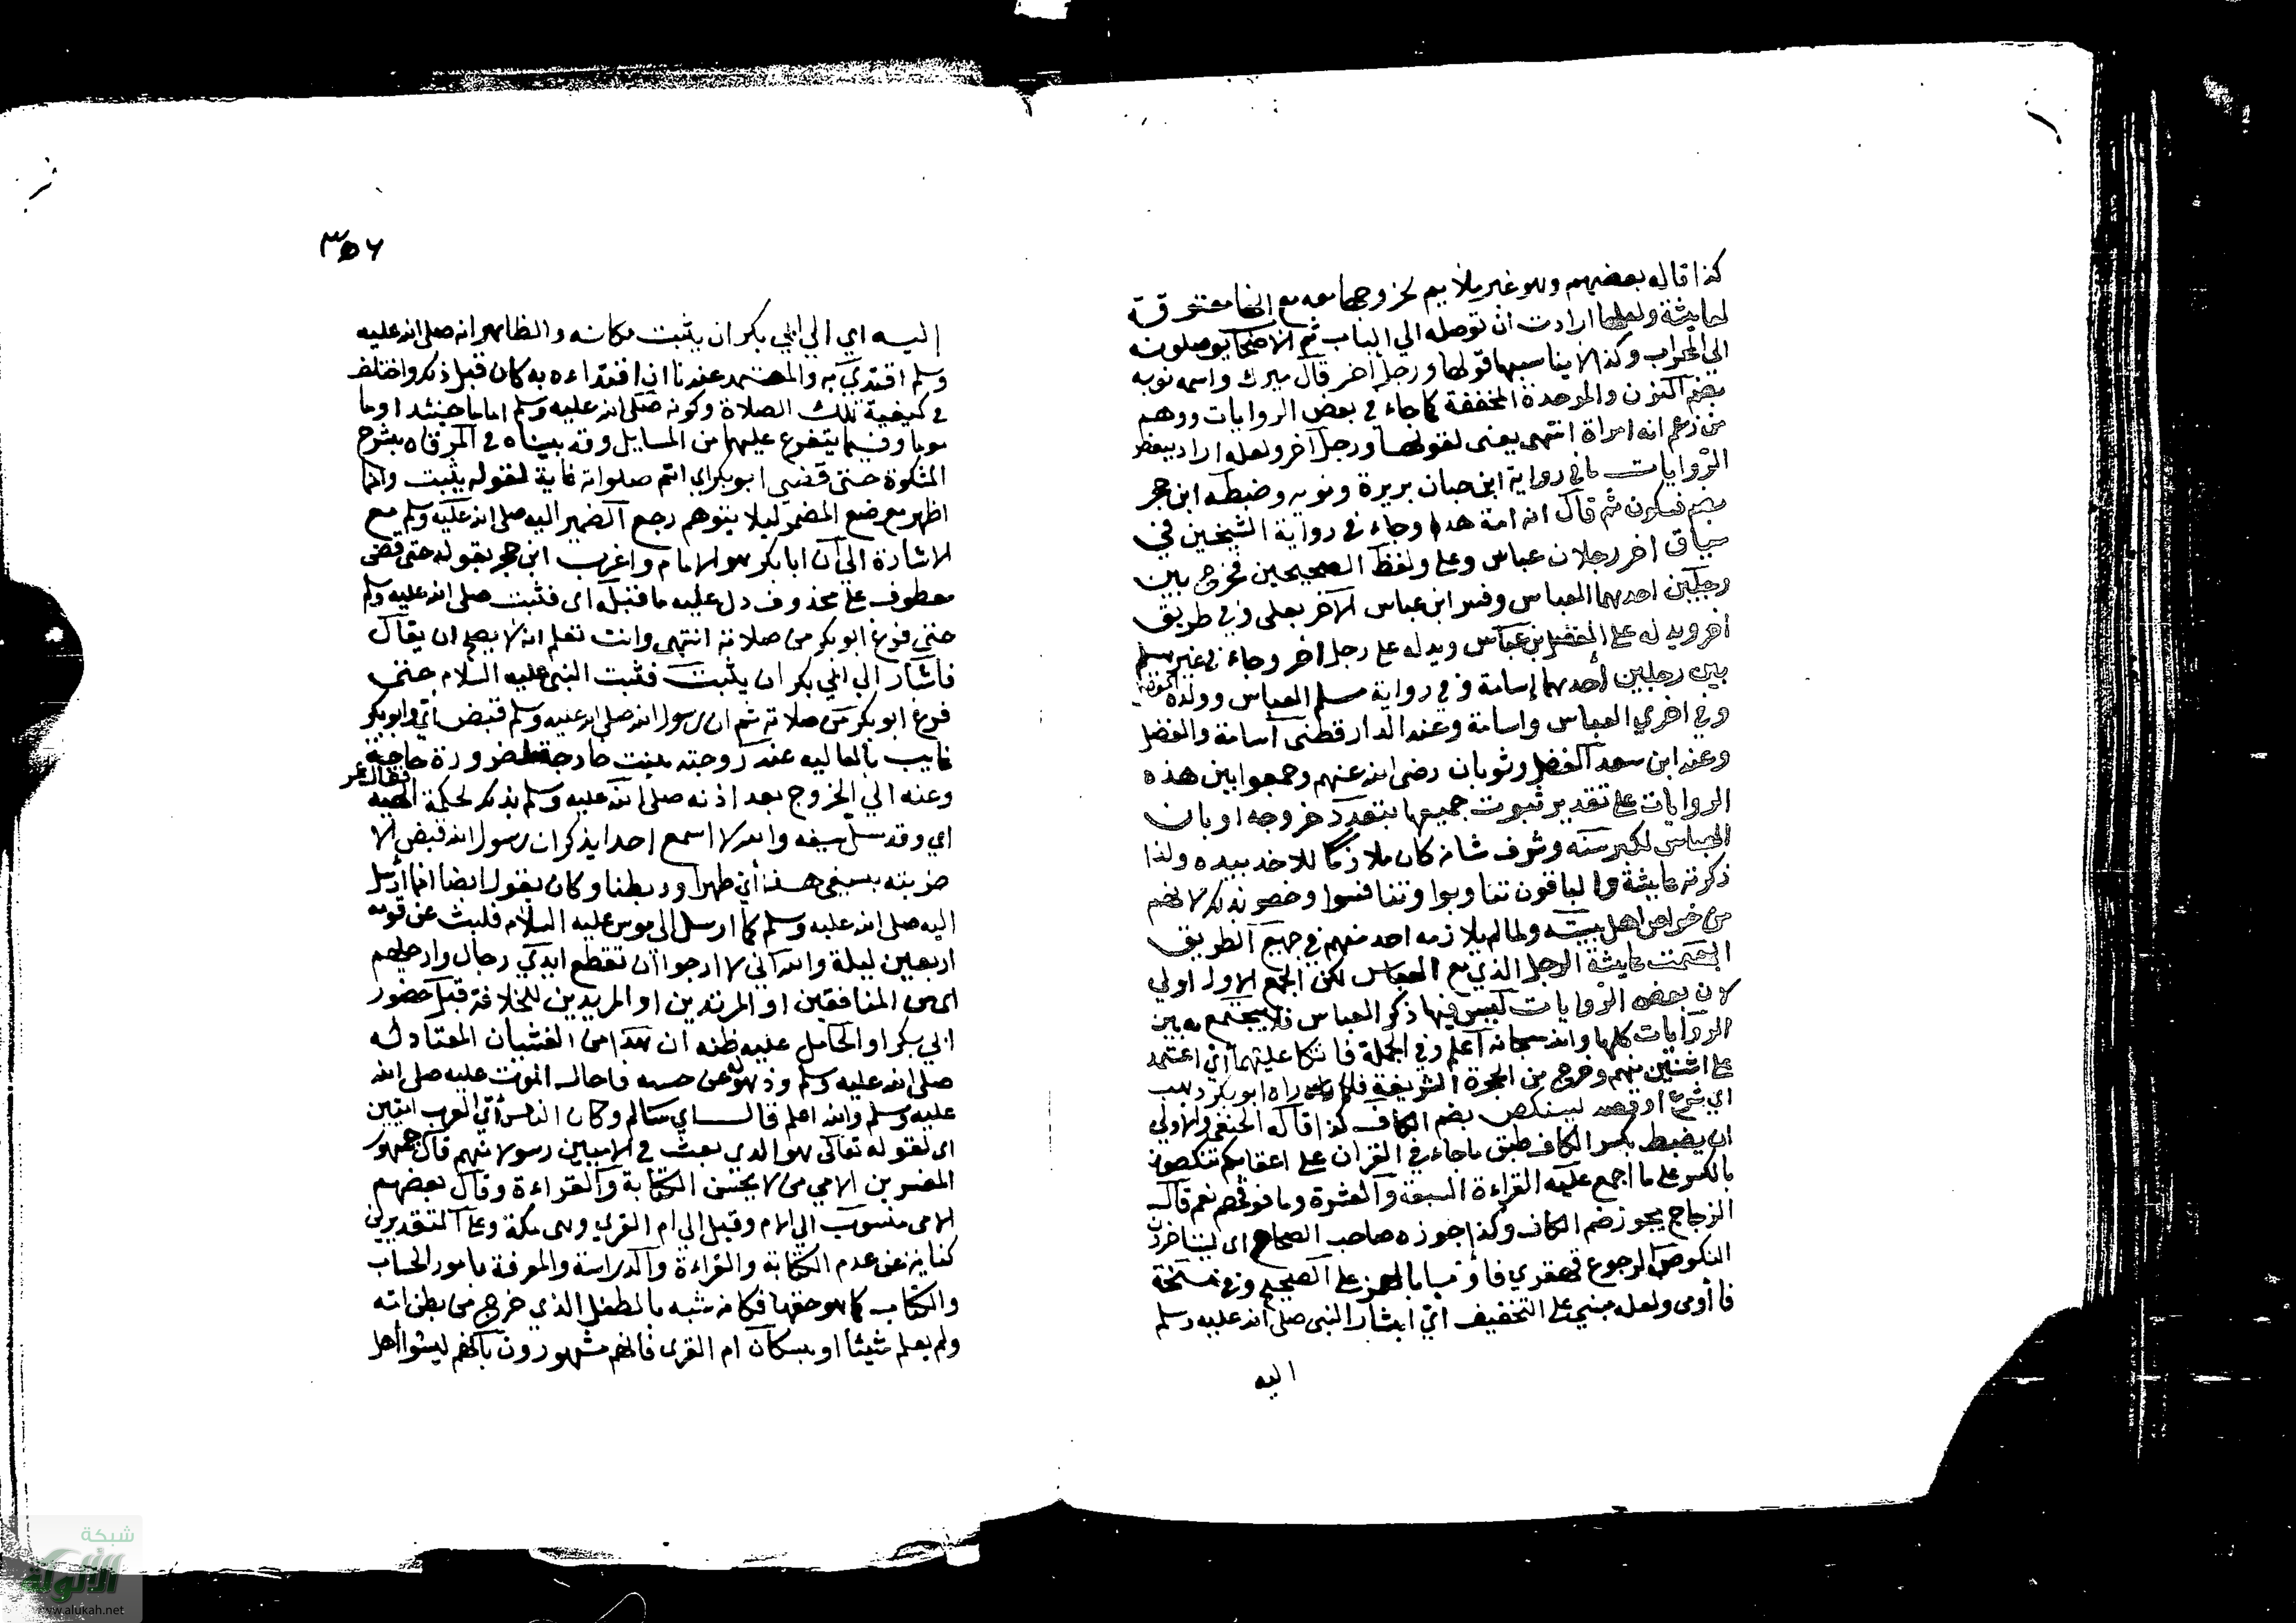 كذا قاله بعضهم وهو غير ملايم لخروجهما معه مع انها معتوقة
لعايشة ولعلها ارادت ان توصله الي الباب ثم الاصحاب يوصلونه
الي المحراب وكذا لا يناسبها قولها ورجل اخر قال ميرك واسمه نوبه
بضم النون والموحدة المخففة كما جاء في بعض الروايات ووهم
من زعم انه امراة انتهى يعني لقولها ورجل آخر ولعله اراد ببعض
الروايات ما في رواية ابن حبان بريرة ونوبه وضبطه ابن حجر
بضم فسكون ثم قال انه امة هذا وجاء في رواية الشيخين في
سياق اخر رجلان عباس وعلي ولفظ الصحيحين فخرج بين
رجلين احدهما العباس وفسر ابن عباس الآخر بعلي وفي طريق
اخر ويد له على الفضل بن عباس ويد له على رجل اخر وجاء في غير مسلم
بين رجلين أحدهما إسامة وفي رواية مسلم العباس وولده
وفي اخري العباس واسامة وعند الدارقطني اسامة والفضل
وعند ابن سعد الفضل وثوبان رضي الله عنهم وجمعوا بين هذه
الروايات على تقدير ثبوت جميعها بتعدد خروجه او بان
العباس لكبر سنه وشرف شانه كان ملازما للاخذ بيده ولذا
ذكرته عايشة والباقون تناوبوا وتنافسوا وخصوا بذلك لانهم
من خواص اهل بيته ولما لم يلازمه احد منهم في جميع الطريق
ابهمت عايشة الرجل الذي مع العباس لكن الجمع الاول اولي
لان بعض الروايات ليس فيها ذكر العباس فلا يجتمع به بين
الروايات كلها والله سبحانه اعلم وفي الجملة فاتكا عليهما أي اعتمد
على اثنين منهم وخرج من الحجرة الشريفة فلما راه ابو بكر ذهب
اي شرع او قصد لينكص بضم الكاف كذا قاله الحنفي والاولي
ان يضبط بكسر الكاف طبق ما جاء في القران على اعقابكم تنكصون
بالكسر على ما اجمع عليه القراءة السبعة والعشرة وما فوقهم نعم قال
الزجاج يجوز ضم الكاف وكذا جوزه صاحب الصحاح اي ليتاخر
النكوص الرجوع قهقري فاومأ بالهمز على الصحيح وفي نسخة
فأومى ولعله مبني على التخفيف اي اشار النبي صلى الله عليه وسلم
اليه
٣٥٦
اليه اي الي ابي بكر ان يثبت مكانه والظاهر انه صلى الله عليه
وسلم اقتدي به والمعتمد عندنا ان اقتداءه به كان قبل ذلك واختلف
في كيفية تلك الصلاة وكونه صلى الله عليه وسلم اماما حينئذ او ما
موما وفيما يتفرع عليهما من المسايل وقد بيناه في المرقاه بشرح
المشكوة حتى قضي ابو بكر اي اتم صلواته غاية لقوله يثبت وانما
اظهر موضع المضمر ليلا يتوهم رجع الضمير اليه صلى الله عليه وسلم مع
الاشارة الي ان ابا بكر هو الامام واغرب ابن حجر بقوله حتى قضى
معطوف على محذوف دل عليه ما قبله اى فثبت صلى الله عليه وسلم
حتى فرغ ابو بكر من صلاته انتهى وانت تعلم انه لا يصح ان يقال
فاشار الي ابي بكر ان يثبت فثبت النبي عليه السلام حتى
فرغ ابو بكر من صلاته ثم ان رسول الله صلى الله عليه وسلم قبض أي وابو بكر
غايب بالعاليه عند زوجته بنت خارجة لضرورة حاجته
وعنه الي الخروج بعد اذنه صلى الله عليه وسلم بذلك لحكمة الهيه
فقال عمر
اي وقد سل سيفه والله لا اسمع احدا يذكر ان رسول الله قبض الا
ضربته بسيفي هذا أي ظهرا وبطنا وكان يقول ايضا انما أرسل
اليه صلى الله عليه وسلم كما ارسل الى موسى عليه السلام فلبث عن قومه
اربعين ليلة والله اني لارجوا ان تقطع ايدي رجال وارجلهم
اي من المنافقين او المرتدين او المريدين للخلافة قبل حضور
ابي بكر او الحامل عليه ظنه ان هذا من الغشيان المعتاد له
صلى الله عليه وسلم وذهوله عن حسه فاحال الموت عليه صلى الله
عليه وسلم والله اعلم قال اي سالم وكان الناس أي العرب اميين
اى لقوله تعالى هو الذي بعث في الاميين رسولا منهم قال جمهور
المفسرين الامي من لا يحسن الكتابة والقراءة وقال بعضهم
الامي منسوب الي الام وقيل الى ام القرى وهي مكة وعلى التقديرين
كناية عن عدم الكتابة والقراءة والدراسة والمعرفة بامور الحساب
والكتاب كما هو حقها فكانه شبه بالطفل الذي خرج من بطن امه
ولم يعلم شيئا او بسكان ام القرى فانهم مشهورون بانهم ليسوا اهل
شبكة
الألوكة
www.alukah.net